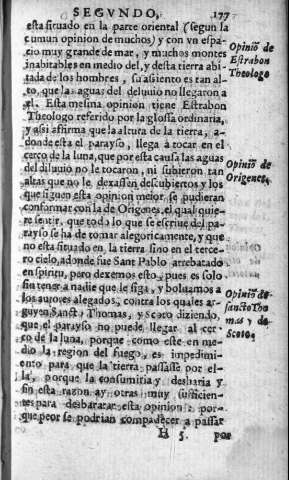 SEGVNDO. 177
esta situado en la parte oriental (segun la
comun opinion de muchos) y con vn espa-
cio muy grande de mar, y muchos montes
inabitables en medio del, y desta tierra abi-
tada de los hombres, su asiento es tan al-
to, que las aguas del deluuio no llegaron
a el. Esta mesma opinion tiene Estrabon
Theologo referido por la glossa ordinaria,
y assi affirma que la altura de la tierra, a-
donde esta el parayso, llega à tocar en el
cerco de la luna, que por esta causa las aguas
del diluuio no le tocaron, ni subieron tan
altas que no le dexassen descubiertos y los
que siguen esta opinion mejor se pudieran
conformar con la de Origenes, el qual quie-
re sentir, que todo lo que se escriue del para-
yso se ha de tomar alegoricamente, y que
no esta situado en la tierra sino en el terce-
ro cielo, adonde fue Sant Pablo arrebatado
en spiritu, pero dexemos esto, pues es solo
sin tener a nadie que le siga, y boluamos a
los autores alegados, contra los quales ar-
guyen Sancto Thomas, y Scoto diziendo,
que el parayso no puede llegar al cer-
co de la luna, porque como este en me-
dio la region del fuego, es impedimi-
ento para que la tierra passasse por el-
la, porque la consumiria y desharia y
sin esta razon ay otras muy sufficien-
tes para desbaratar esta opinion: por-
que peor se podrian compadecer a passar
H 5. por
Opinió de
Estrabon
Theologo
Opinió de
Origenes
Opinió de
sancto Tho
mas y de
Scoto.